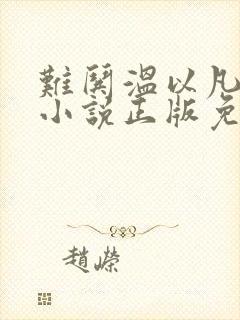 難鬨溫以凡
小說正版免
趙嶸